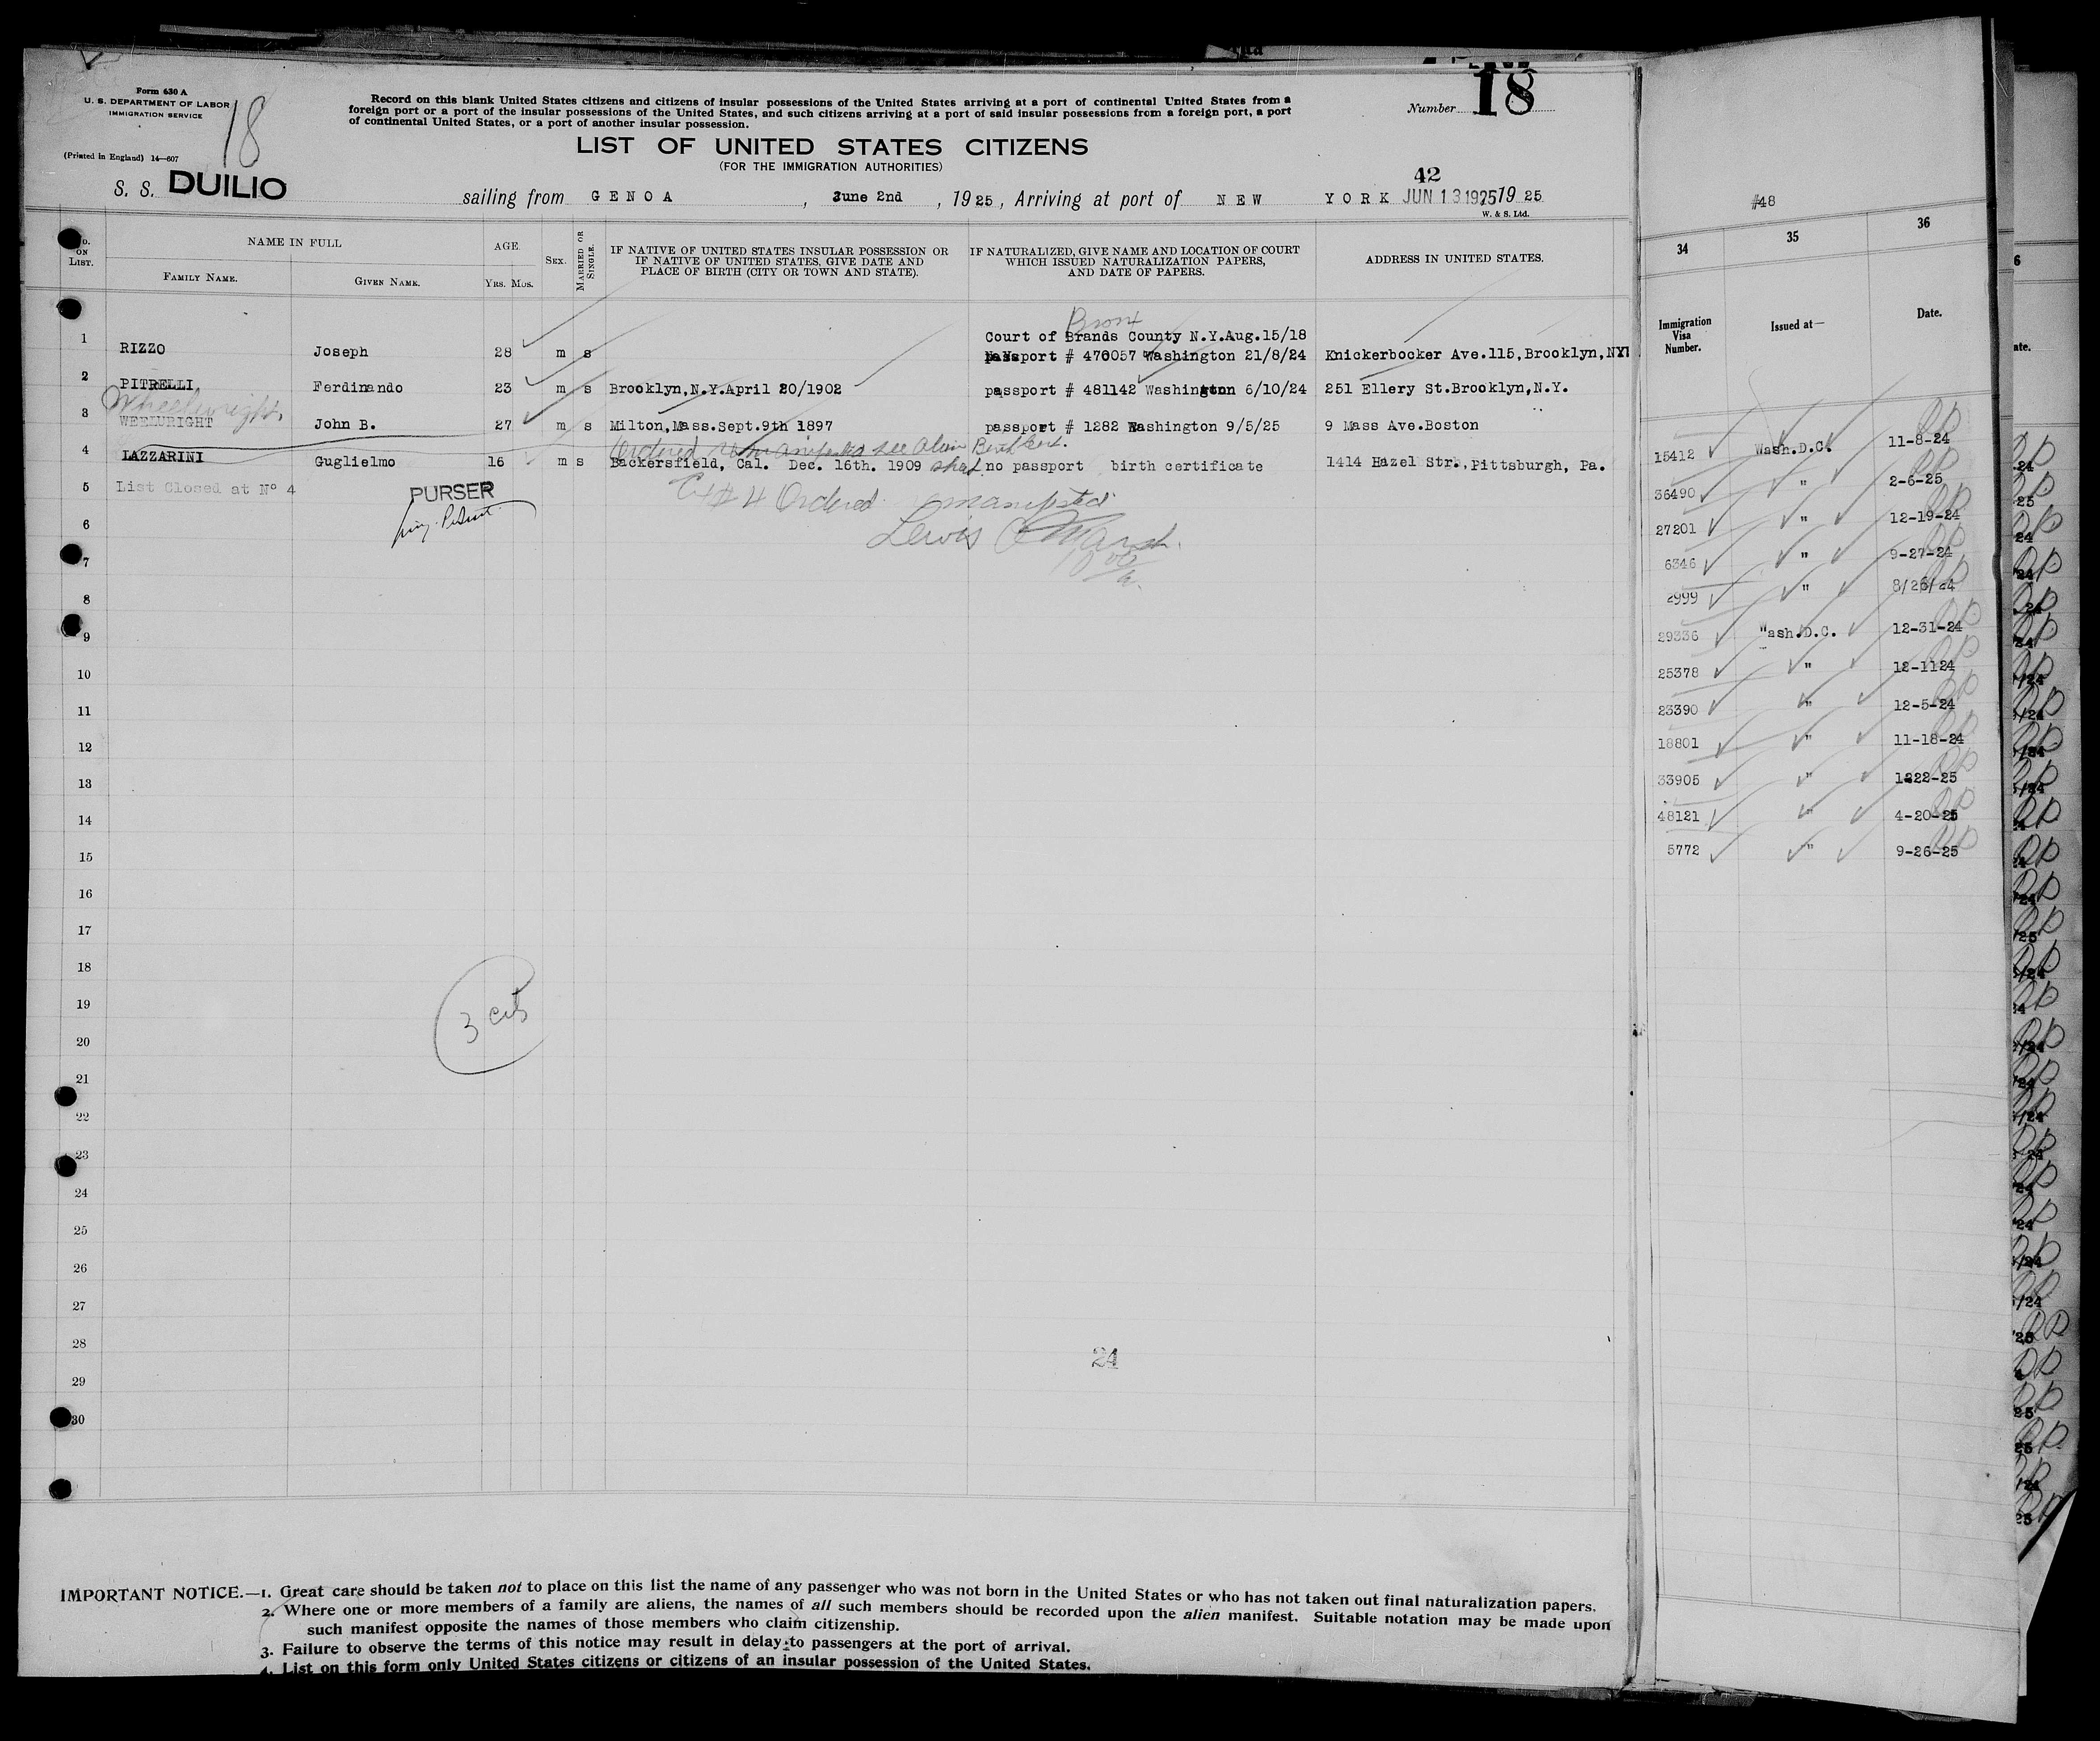 Form 630 A
U. S. DEPARTMENT OF LABOR
IMMIGRATION SERVICE
(Printed in England) 14—607
18
Record on this blank United States citizens and citizens of insular possessions of the United States arriving at a port of continental United States from a
foreign port or a port of the insular possessions of the United States, and such citizens arriving at a port of said insular possessions from a foreign port, a port
of continental United States, or a port of another insular possession.
Number 18
LIST OF UNITED STATES CITIZENS
(FOR THE IMMIGRATION AUTHORITIES)
42
S. S. DUILIO sailing from GENOA, June 2nd, 1925, Arriving at port of NEW YORK JUN 13 1925 1925
W. & S. Ltd.
NO. ON LIST.
NAME IN FULL
FAMILY NAME. GIVEN NAME.
AGE
YRS. MOS.
SEX.
MARRIED OR SINGLE.
IF NATIVE OF UNITED STATES INSULAR POSSESSION OR
IF NATIVE OF UNITED STATES, GIVE DATE AND
PLACE OF BIRTH (CITY OR TOWN AND STATE).
IF NATURALIZED, GIVE NAME AND LOCATION OF COURT
WHICH ISSUED NATURALIZATION PAPERS,
AND DATE OF PAPERS.
ADDRESS IN UNITED STATES.
Bronx
Court of Brands County N.Y.Aug.15/18
1 RIZZO Joseph 28 m s passport # 470057 Washington 21/8/24 Knickerbocker Ave.115,Brooklyn,NY
2 PITRELLI Ferdinando 23 m s Brooklyn,N.Y.April 20/1902 passport # 481142 Washington 6/10/24 251 Ellery St.Brooklyn,N.Y.
Wheelwright,
3 WEELURIGHT John B. 27 m s Milton,Mass.Sept.9th 1897 passport # 1282 Washington 9/5/25 9 Mass Ave.Boston
Ordered see alien
4 LAZZARINI Guglielmo 16 m s Backersfield, Cal. Dec. 16th. 1909 no passport birth certificate 1414 Hazel Str., Pittsburgh, Pa.
5 List Closed at Nº 4
PURSER
# 4 Ordered
Lewis
6
7
8
9
10
11
12
13
14
15
16
17
18
19
20
21
22
23
24
25
26
27
28
29
30
3 cits
24
IMPORTANT NOTICE.—1. Great care should be taken not to place on this list the name of any passenger who was not born in the United States or who has not taken out final naturalization papers.
2. Where one or more members of a family are aliens, the names of all such members should be recorded upon the alien manifest. Suitable notation may be made upon
such manifest opposite the names of those members who claim citizenship.
3. Failure to observe the terms of this notice may result in delay to passengers at the port of arrival.
4. List on this form only United States citizens or citizens of an insular possession of the United States.
#48
34 35 36
Immigration Visa Number. Issued at— Date.
15412 Wash.D.C. 11-8-24
36490 " 2-6-25
27201 " 12-19-24
6346 " 9-27-24
2999 " 8/26/24
29336 Wash.D.C. 12-31-24
25378 " 12-1124
23390 " 12-5-24
18801 " 11-18-24
33905 " 1222-25
48121 " 4-20-25
5772 " 9-26-25